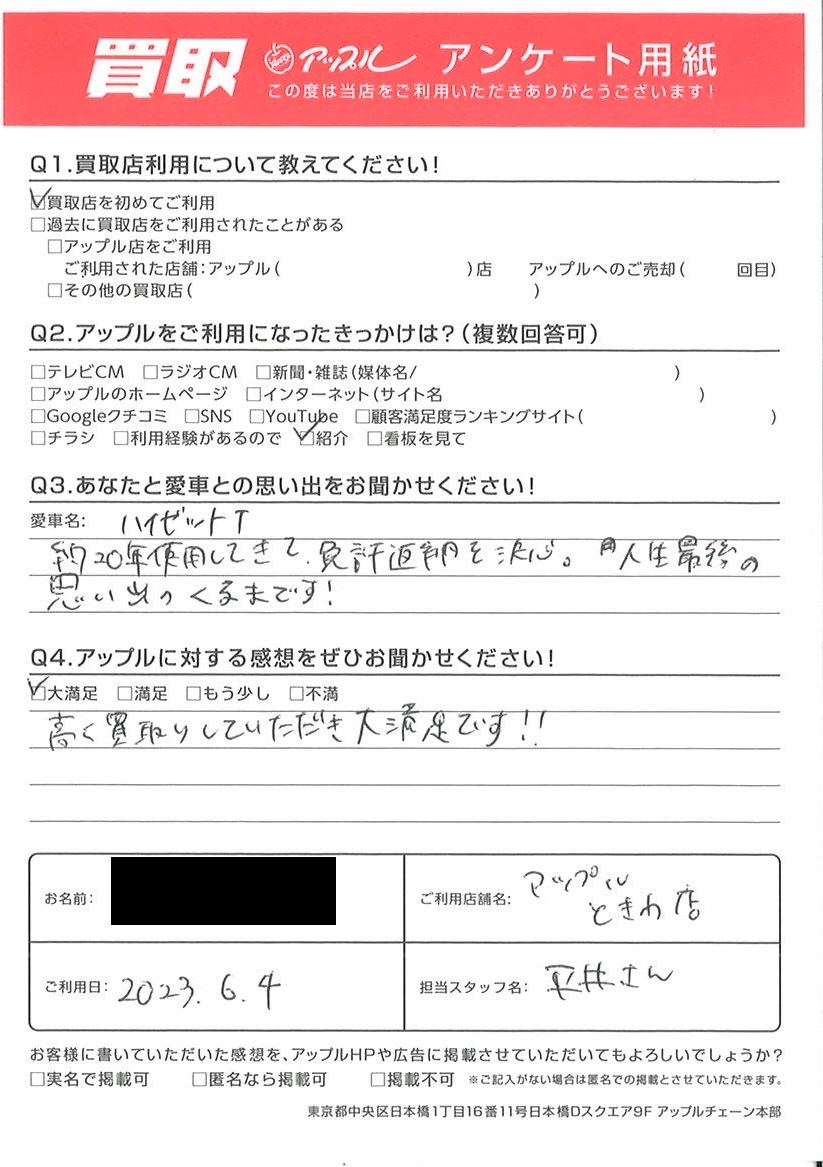 買取 アップル アンケート用紙
この度は当店をご利用いただきありがとうございます!
Q1.買取店利用について教えてください!
☑買取店を初めてご利用
□過去に買取店をご利用されたことがある
□アップル店をご利用
ご利用された店舗:アップル( )店 アップルへのご売却( 回目)
□その他の買取店( )
Q2.アップルをご利用になったきっかけは?(複数回答可)
□テレビCM □ラジオCM □新聞・雑誌(媒体名/ )
□アップルのホームページ □インターネット(サイト名 )
□Googleクチコミ □SNS □YouTube □顧客満足度ランキングサイト( )
□チラシ □利用経験があるので ☑紹介 □看板を見て
Q3.あなたと愛車との思い出をお聞かせください!
愛車名: ハイゼットT
約20年使用してきて、免許返納を決心。人生最後の
思い出のくるまです!
Q4.アップルに対する感想をぜひお聞かせください!
☑大満足 □満足 □もう少し □不満
高く買取りしていただき大満足です!!
お名前:
ご利用店舗名: アップル
ときわ店
ご利用日: 2023.6.4
担当スタッフ名: 平井さん
お客様に書いていただいた感想を、アップルHPや広告に掲載させていただいてもよろしいでしょうか?
□実名で掲載可 □匿名なら掲載可 □掲載不可 ※ご記入がない場合は匿名での掲載とさせていただきます。
東京都中央区日本橋1丁目16番11号日本橋Dスクエア9F アップルチェーン本部